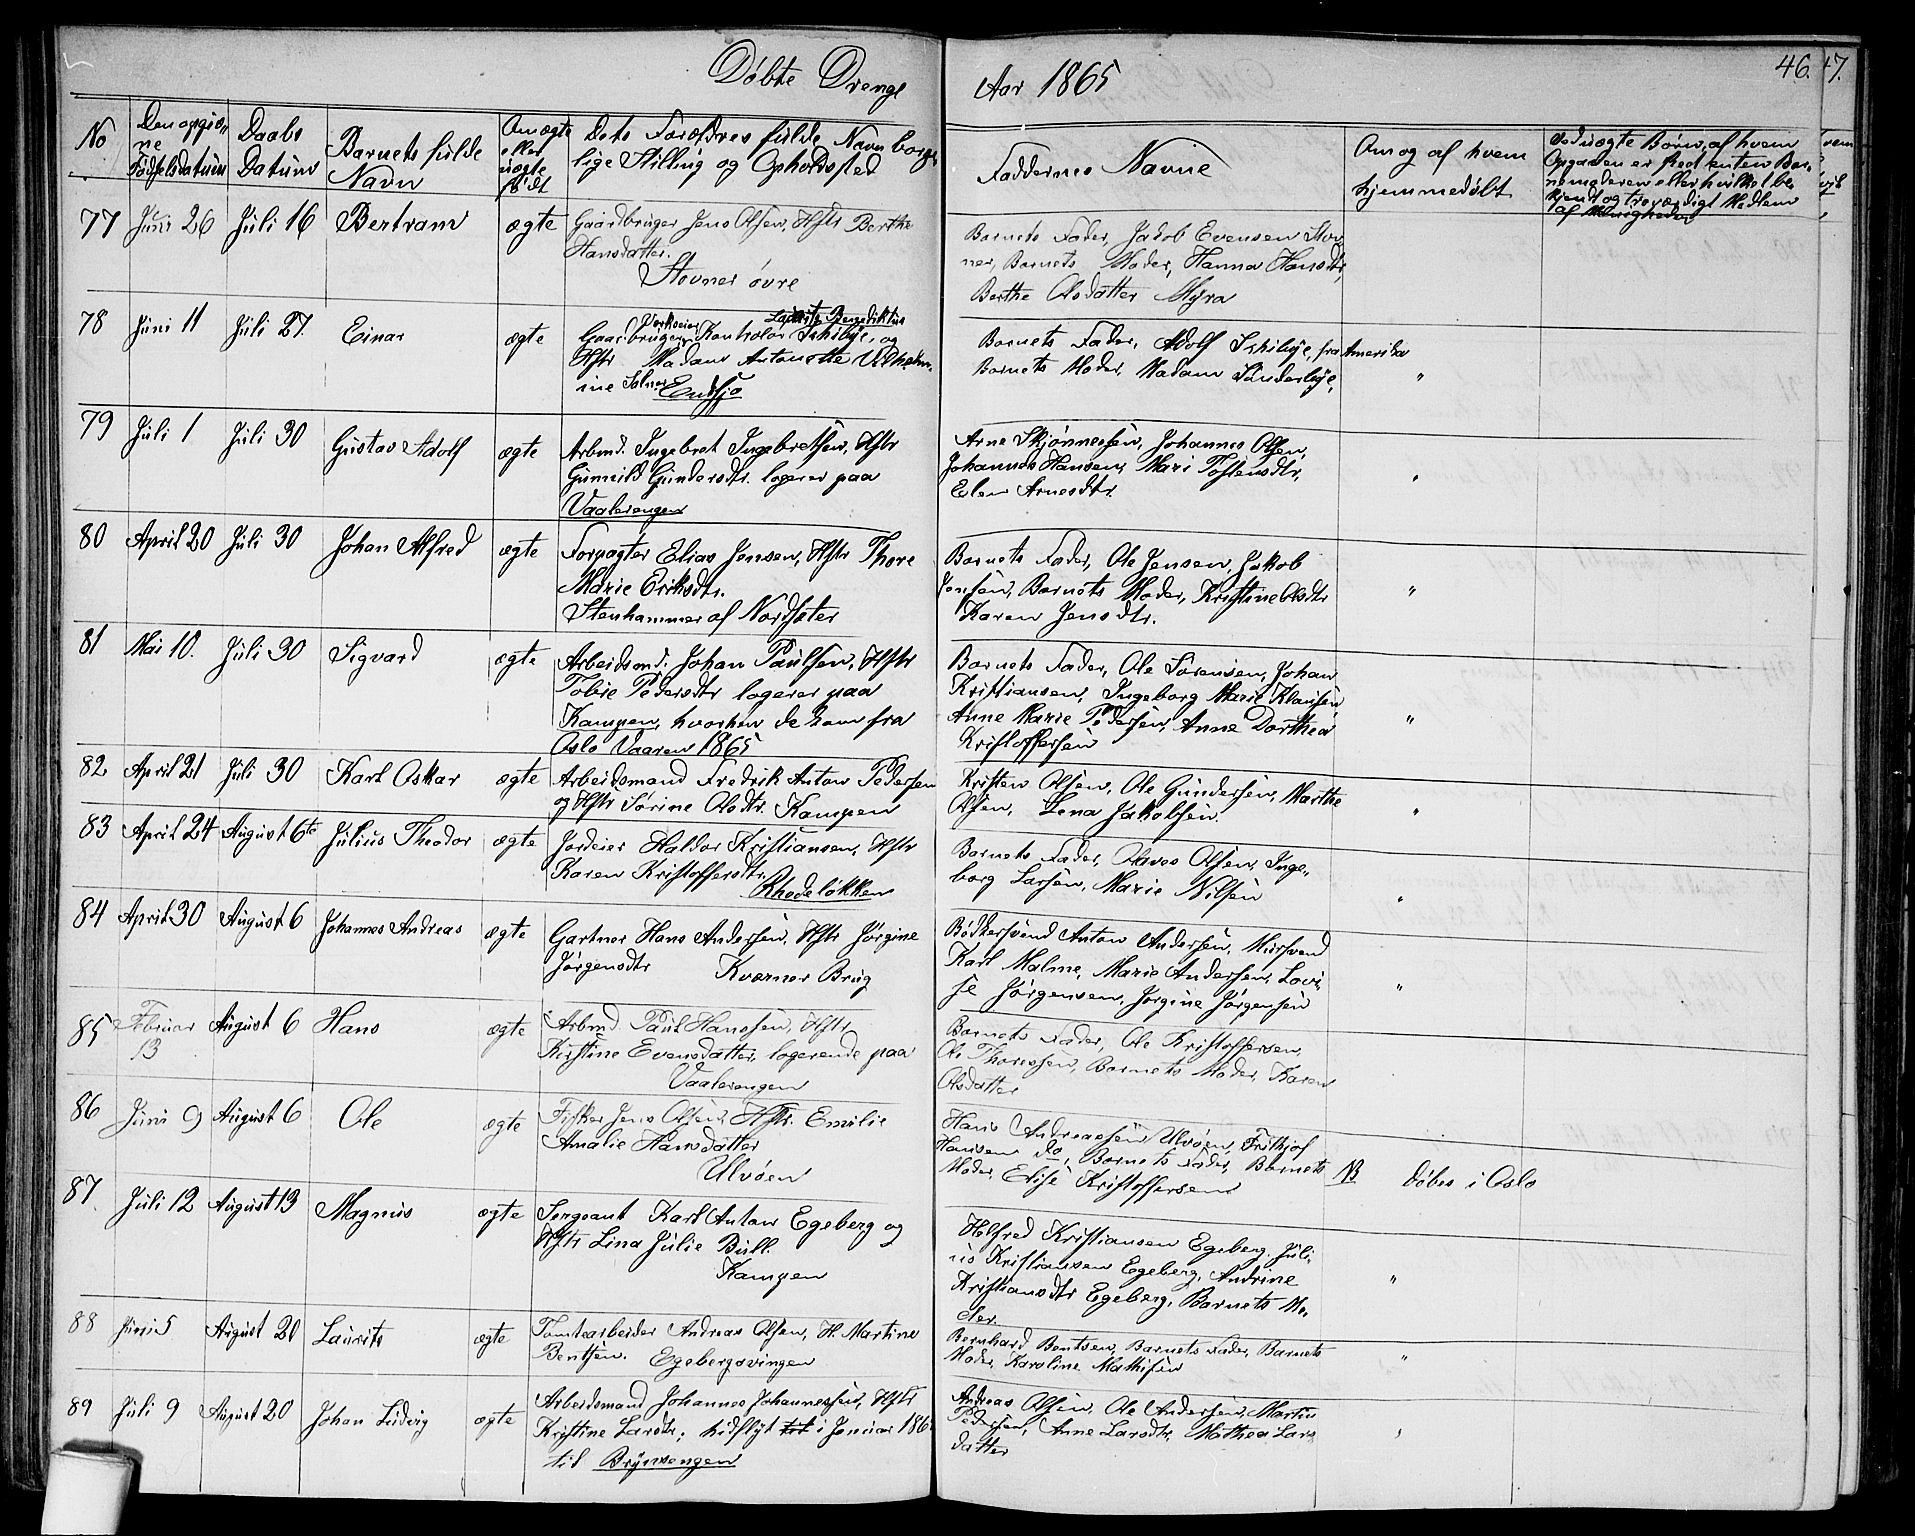 Døbte Drenge
Aar 1865
46.
47.
No
Den opgivne Fødselsdatum
Daabs Datum
Barnets fulde Navn
Om ægte eller uægte født
Dets Forældres fulde Navn borgerlige Stilling og Opholdssted
Faddernes Navne
Om og af hvem hjemmedøbt
77 Juni 26 Juli 16 Bertram ægte Gaardbruger Jens Olsen, Hstr Berthe
Hansdatter.
Stovner øvre
Barnets Fader, Jakob Evensen Stov
ner, Barnets Moder, Hanna Hansdtr,
Berthe Olsdatter Myra
78 Juni 11 Juli 27. Einar ægte Gaardbruger, Kontrolør Lauritz Benediktus Iskilye, og
Hstr Madam Antonette Vilhelm
ine Endsjø
Barnets Fader, Adolf Iskilye, fra Amerika
Barnets Moder, Madam Sünderlye, "
79 Juli 1 Juli 30 Gustav Adolf ægte Arbmd. Ingebret Ingebretsen, Hstr
Gunnild Gundersdtr. logerer paa
Vaalerengen
Arne Skjønnesen, Johannes Olsen,
Johannes Hansen, Mari Tostensdtr,
Elen Arnesdtr. "
80 April 20 Juli 30 Johan Alfred ægte Forpagter Elias Jensen, Hstr Thore
Marie Eriksdtr.
Stenhammer af Nordseter
Barnets Fader, Ole Jensen, Jakob
Jensen, Barnets Moder, Kristine Olsdtr
Karen Jensdtr. "
81 Mai 10. Juli 30 Sigvard ægte Arbeidsmd. Johan Paulsen, Hstr
Tobie Pedersdtr logerer paa
Kampen, hvorhen de kom fra
Oslo Vaaren 1865
Barnets Fader, Ole Sørensen, Johan
Kristiansen, Ingeborg Marie Klausen,
Anne Marie Pedersen, Anne Dorthea
Kristoffersen "
82 April 21 Juli 30 Karl Oskar ægte Arbeidsmand Fredrik Anton Pedersen
og Hstr Sørine Olsdtr. Kampen
Kristen Olsen, Ole Gundersen, Marthe
Olsen, Lena Jakobsen. "
83 April 24 August 6te Julius Theodor ægte Jordeier Haldor Kristiansen, Hstr
Karen Kristoffersdtr.
Rhodeløkken
Barnets Fader, Olaves Olsen, Inge,
borg Larsen, Marie Nilsen "
84 April 30 August 6 Johannes Andreas ægte Gartner Hans Andersen, Hstr Jørgine
Jørgensdtr Kværner Brug
Bødkersvend Anton Andersen, Mursvend
Karl Malme, Marie Andersen, Lovi,
se Jørgensen, Jørgine Jørgensen "
85 Februar
13 August 6 Hans ægte Arbmd. Paul Hansen, Hstr
Kristine Evensdatter, logerende paa
Vaalerengen
Barnets Fader, Ole Kristoffersen,
Ole Thoresen, Barnets Moder, Karen
Olsdatter
86 Juni 9 August 6 Ole ægte Fisker Jens Olsen, Hstr. Emilie
Amalie Hansdatter
Ulvøen
Hans Andreassen Ulvøen, Frithjof
Hansen do, Barnets Fader, Barnets
Moder, Elise Kristoffersen NB døbes i Oslo
87. Juli 12 August 13 Magnus ægte Sergeant Karl Anton Egeberg og
Hstr Lina Julie Bull.
Kampen
Helfred Kristiansen Egeberg, Juli,
us Kristiansen Egeberg, Andrine
Kristiansdtr Egeberg, Barnets Mo,
der. "
88 Juni 5 August 20 Laurits ægte Tomtearbeider Andreas Olsen, H. Martine
Bentsen. Egebergsvingen
Bernhard Bentsen, Barnets Fader, Barnets
Moder, Karoline Mathisen "
89 Juli 9 August 20 Johan Ludvig ægte Arbeidsmand Johannes Johannessen, Hstr
Kristine Larsdtr; hidflyt i Januar 186
til Brynsengen
Andreas Olsen, Ole Andersen, Martin
Pedersen, Anne Larsdtr, Mathea Lars
datter "